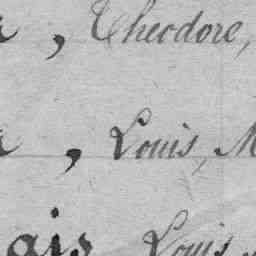 , Theodore,
, Louis, M
ais Louis